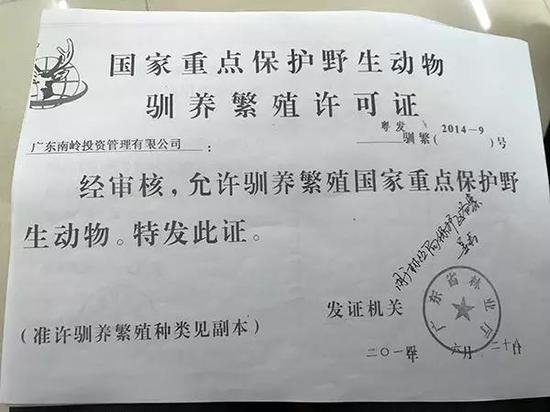 国家重点保护野生动物
驯养繁殖许可证
粤发
广东南岭投资管理有限公司:
驯繁(2014-9)号
经审核,允许驯养繁殖国家重点保护野
生动物。特发此证。
发证机关
广东省林业厅
(准许驯养繁殖种类见副本)
二〇一四年六月二十日